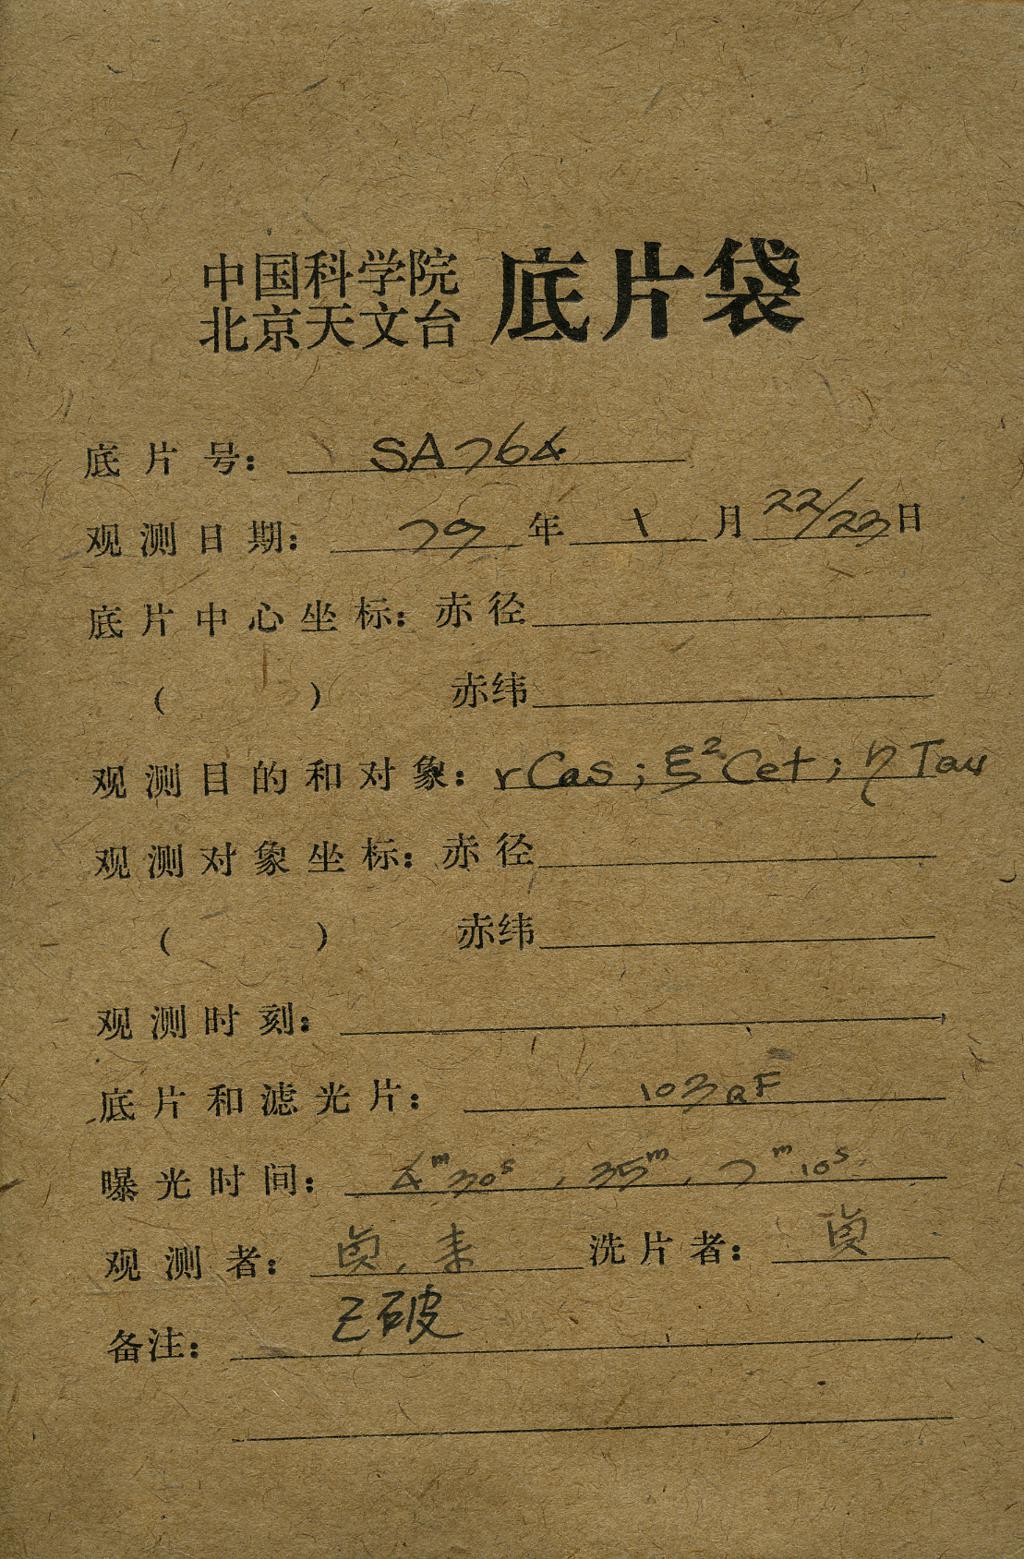 中国科学院
北京天文台 底片袋
底片号： SA764
观测日期： 79 年 十 月 22/23 日
底片中心坐标：赤径
（ ） 赤纬
观测目的和对象：rCas；ξ²Cet；η Tau
观测对象坐标：赤径
（ ） 赤纬
观测时刻：
底片和滤光片： 103aF
曝光时间： 4ᵐ30ˢ，35ᵐ，7ᵐ10ˢ
观测者： 贞， 洗片者： 贞
备注： 已破